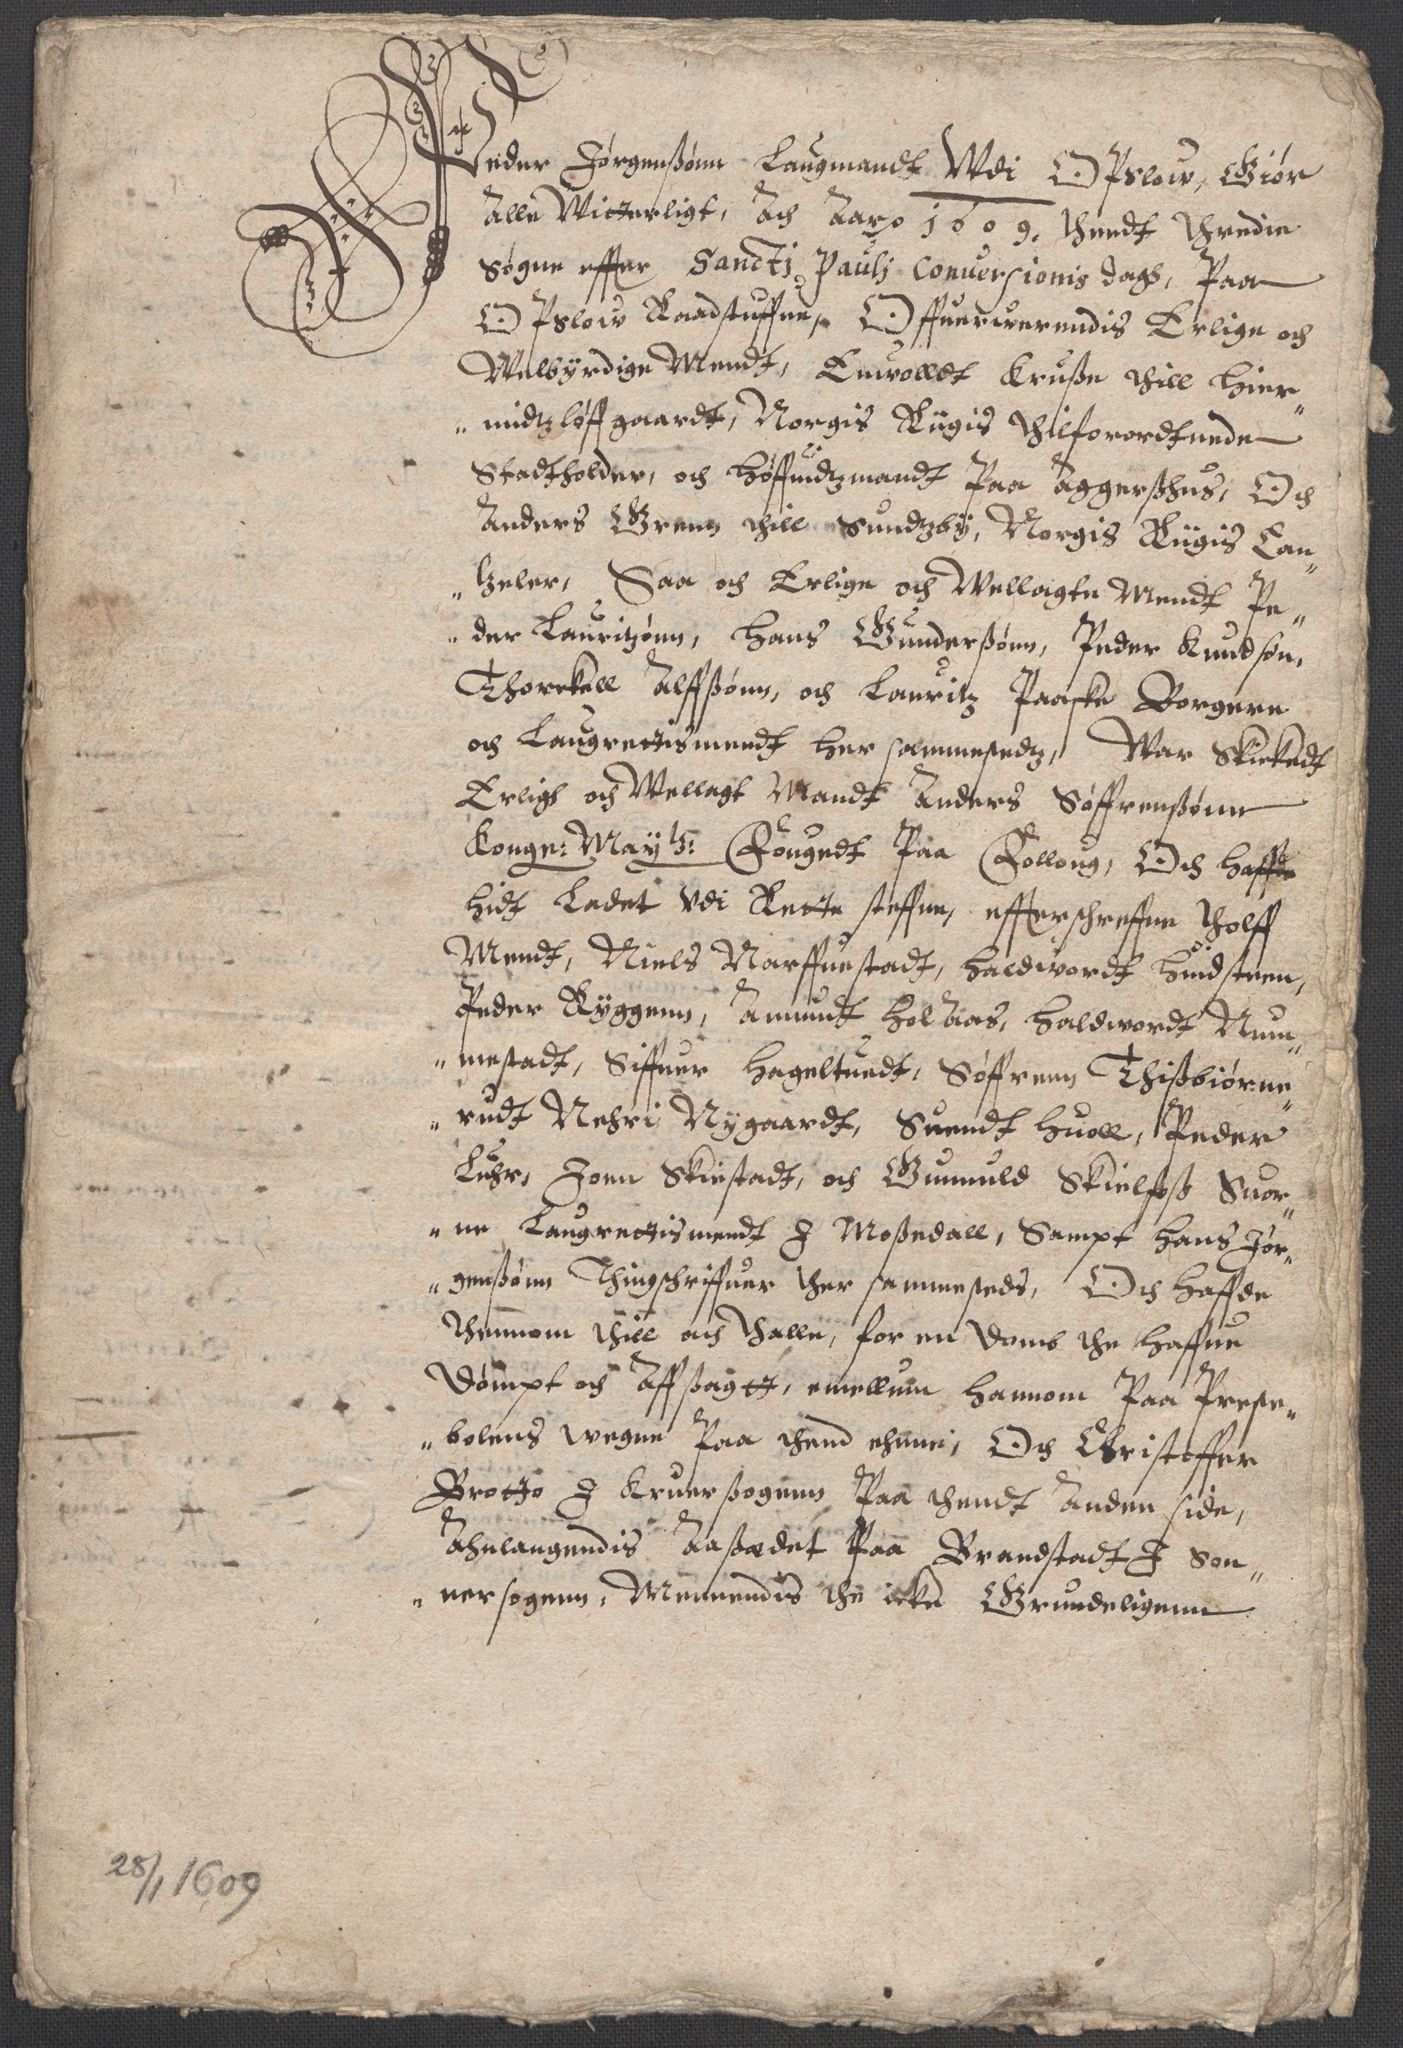 Peder Jørgenßønn Laugmandt Wdi Opslow, Giør
Alle Witterligt, Ath Aaro 1609. thendt thredie
Søgne effter Sanctj Paulj Conuersionis dagh, Paa
Opslow Raadstuffue, Offueruerendis Erlige och
Welbyrdige Mendt, Enuoldt Kruße thill Hier„
„midtzløffgaardt, Norgis Rigis thilforordtnede
Stadtholder, och Høffuidtzmandt Paa Aggerßhus, Och
Anders Grenn thill Sundtzby, Norgis Riigis Can„
„tzeler, Saa och Erlige och Wellagte Mendt Pe„
„der Lauritzønn, Hans Gunderßønn, Peder Knudsøn,
Thorckell Alffßønn, och Lauritz Paaske Borgere
och Laugrettismendt her sammestedtz, War Skickedt
Erligh och Wellagt Mandt Anders Søffrenßønn
Konge: May tz: Fougedt Paa Folloug, Och haffde
hidt Ladet Vdi Rette steffne, effterschreffne tholff
Mendt, Niels Narffuestadt, Haldwordt Huidsteen,
Peder Ryggenn, Amundt Holaas, Haldwordt Num„
„mestadt, Siffuer Hageltuedt, Søffrenn Thißbiørne„
„rudt Nehri Nygaardt, Suendt Huoll, Peder
Luhr, Joen Skiestadt, och Gunnuld Skielfoß Suor„
„ne Laugrettismendt J Moßedall, Sampt Hans Jør„
„genßønn Thingschriffuer ther sammesteds, Och haffde
thennom thill ath thalle, for en domb the haffue
Dømpt och Affsagtt, emellum hannom Paa Preste„
„bolens wegne Paa thend ehene, Och Christoffer
Brotto J Kruerßogenn Paa thendt Anden side,
Ahnlangendis Aaßædet Paa Brandstadt J Son„
„ner sogenn, Menendis the icke Grundeligenn
28/1 1609